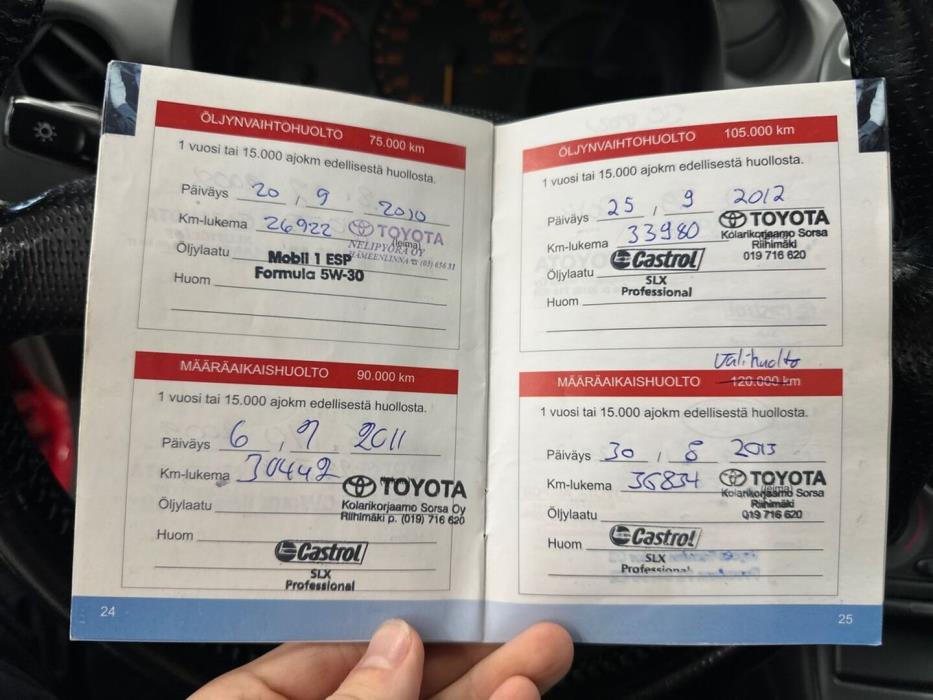 ÖLJYNVAIHTOHUOLTO 75.000 km
1 vuosi tai 15.000 ajokm edellisestä huollosta.
Päiväys 20 , 9 2010
Km-lukema 26922
TOYOTA
(leima)
NELIPYÖRÄ OY
HÄMEENLINNA ☎ (03) 656 31
Öljylaatu Mobil 1 ESP
Formula 5W-30
Huom
MÄÄRÄAIKAISHUOLTO 90.000 km
1 vuosi tai 15.000 ajokm edellisestä huollosta.
Päiväys 6 , 9 2011
Km-lukema 30442
TOYOTA
Kolarikorjaamo Sorsa Oy
Riihimäki p. (019) 716 620
Öljylaatu
Huom
Castrol
SLX
Professional
24
ÖLJYNVAIHTOHUOLTO 105.000 km
1 vuosi tai 15.000 ajokm edellisestä huollosta.
Päiväys 25 , 9 2012
Km-lukema 33980
TOYOTA
Kolarikorjaamo Sorsa
Riihimäki
019 716 620
Öljylaatu Castrol
SLX
Professional
Huom
Välihuolto
MÄÄRÄAIKAISHUOLTO 120.000 km
1 vuosi tai 15.000 ajokm edellisestä huollosta.
Päiväys 30 , 8 2013
Km-lukema 36834
TOYOTA
(leima)
Kolarikorjaamo Sorsa
Riihimäki
019 716 620
Öljylaatu
Huom Castrol
SLX
Professional
25